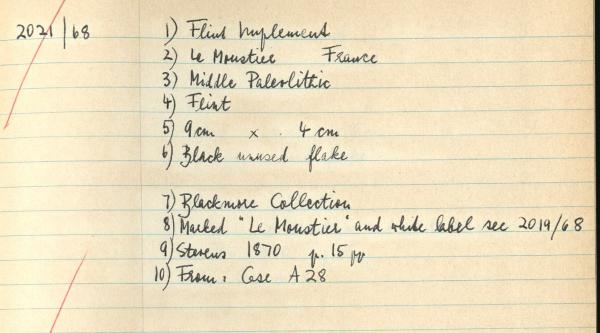 2021/68 1) Flint Implement
2) Le Moustier France
3) Middle Paleolithic
4) Flint
5) 9cm x . 4 cm
6) Black unused flake
7) Blackmore Collection
8) Marked "Le Moustier" and white label see 2019/68
9) Stevens 1870 p. 15 pp
10) From: Case A28